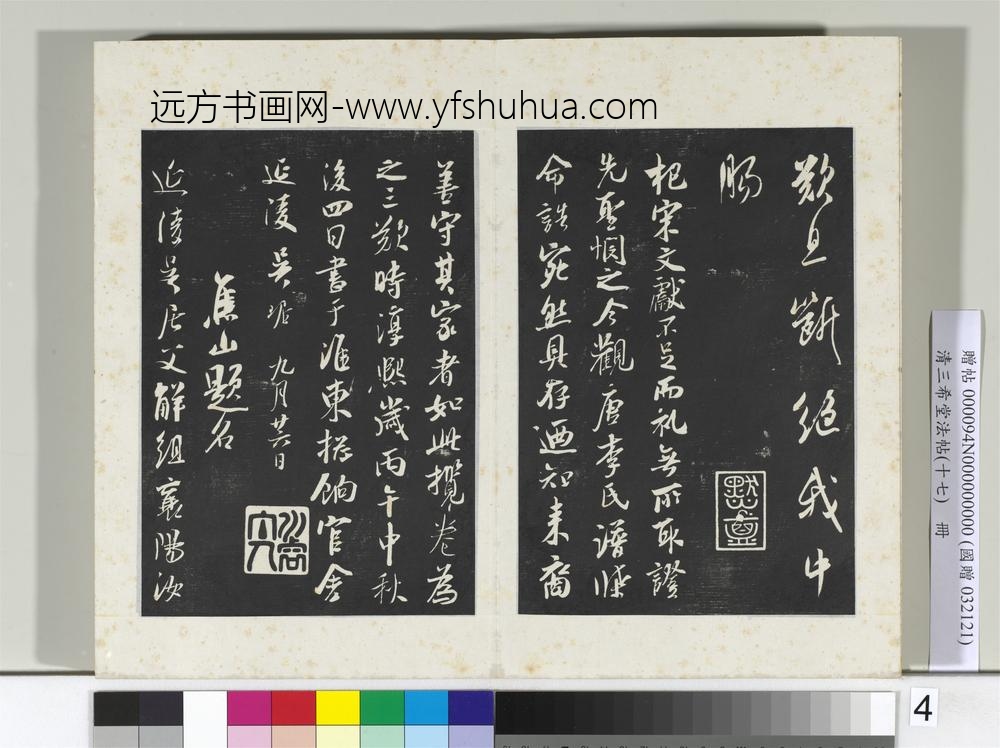 远方书画网-www.yfshuhua.com
歎且斷絕我中
腸
杞宋文獻不足而礼無所取證
先聖惘之今觀唐李氏譜牒
命誥宛然具存迺知来裔
善守其家者如此攬卷為
之三歎時淳熙歲丙午中秋
後四日書于淮東総餉官舍
延陵吴琚 九月廿六日
焦山題名
延陵吴居父解組襄陽汝
贈帖 000094N000000000 (國贈 032121)
清三希堂法帖(十七) 冊
4